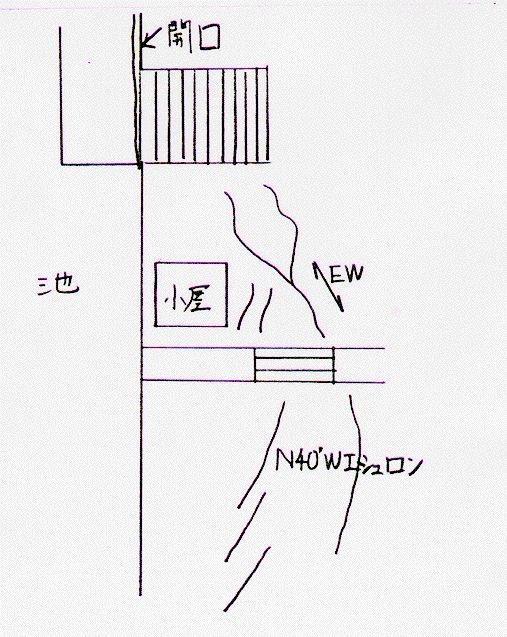 開口
池
小屋
EW
N40°Wエシュロン